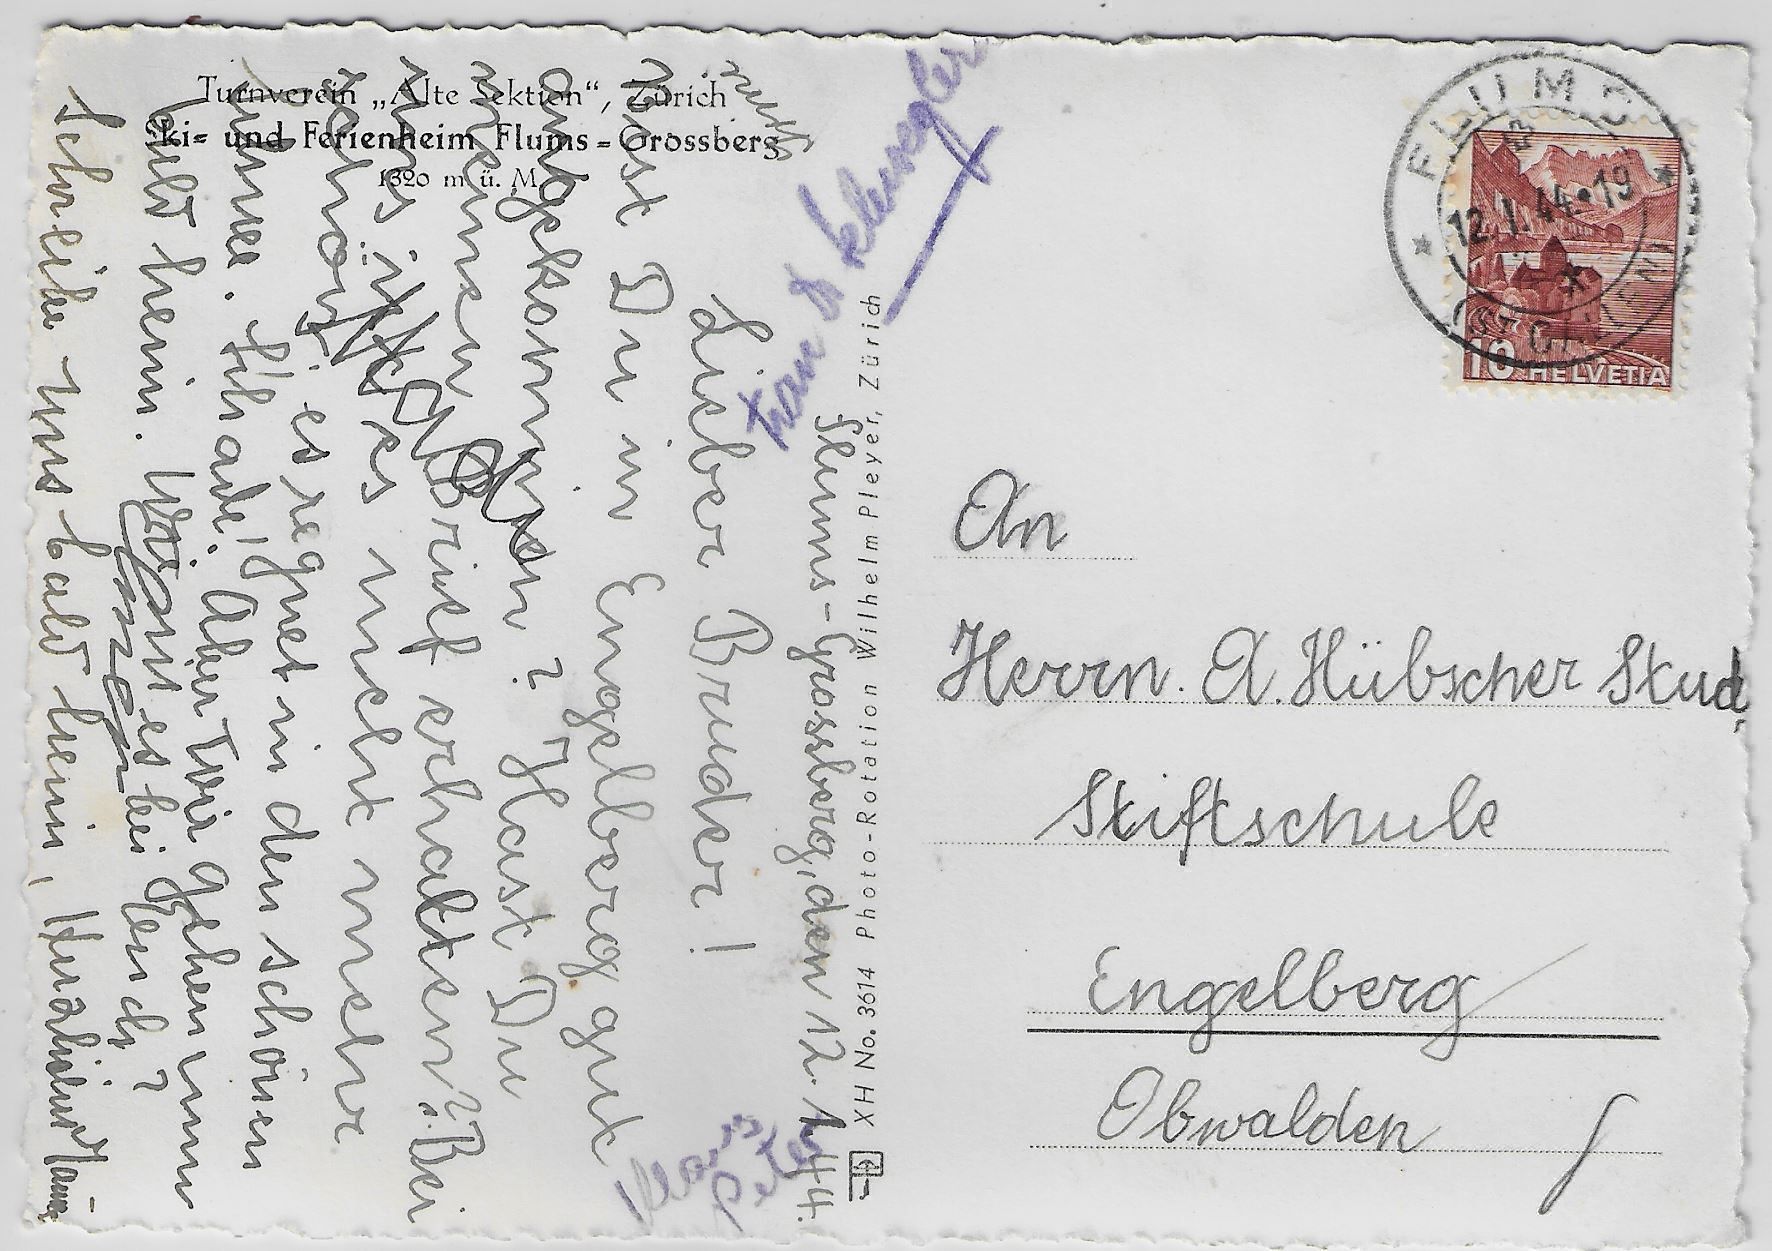 Turnverein „Alte Sektion“, Zürich
Ski- und Ferienheim Flums-Grossberg
1320 m ü. M.
Flums-Grossberg, den 12. 1. 44.
Lieber Bruder!
Bist Du in Engelberg gut
angekommen? Hast Du
meinen Brief erhalten? Bei
uns ist es nicht mehr
schön, es regnet in den schönen
Schnee. Schade! Aber wir gehen nun
bald heim. Wie ist es bei Euch?
Schreibe uns bald heim,
Klaus
Peter
XH No. 3614 Photo-Rotation Wilhelm Pleyer, Zürich
FLUMS
12. I. 44-19
(ST. GALLEN)
10 HELVETIA
An
Herrn. A. Hübscher Stud.
Stiftschule
Engelberg
Obwalden